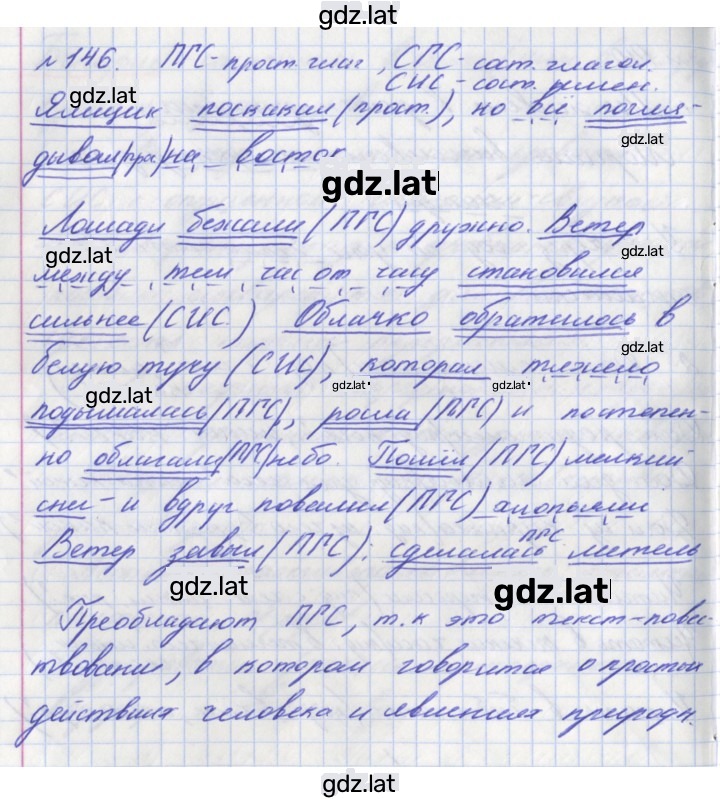 gdz.lat
№146. ПГС - прост. глаг., СГС - сост. глагол.
СИС - сост. имен.
gdz.lat
Ямщик поскакал (прост.), но всё погля-
gdz.lat
дывал (пр.) на восток
gdz.lat
Лошади бежали (ПГС) дружно. Ветер
gdz.lat gdz.lat
между тем час от часу становился
сильнее (СИС) Облачко обратилось в
gdz.lat
белую тучу (СИС), которая тяжело
gdz.lat gdz.lat gdz.lat
подымалась (ПГС), росла (ПГС) и постепен-
но облагала (ПГС) небо. Пошёл (ПГС) мелкий
снег - и вдруг повалил (ПГС) хлопьями
Ветер завыл (ПГС); сделалась ПГС метель
gdz.lat gdz.lat
Преобладают ПГС, т.к это текст-повес-
твование, в котором говорится о простых
действиях человека и явлениях природы.
gdz.lat